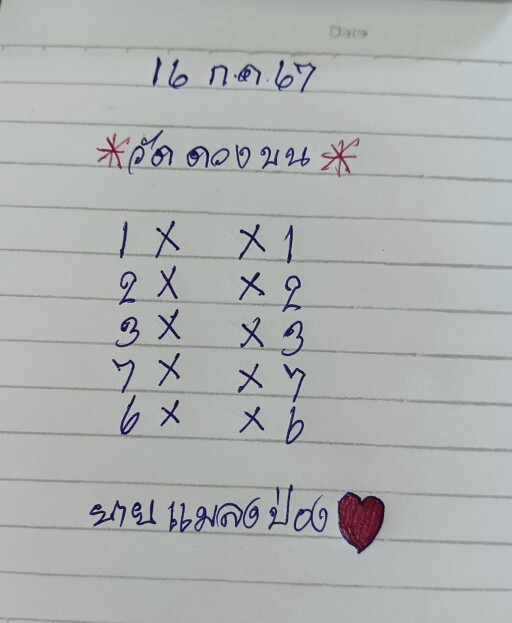 Date
16 ก.ค. 67
*วัด ดวง บน*
1 X X 1
2 X X 2
3 X X 3
7 X X 7
6 X X 6
ยาย แมลงป่อง